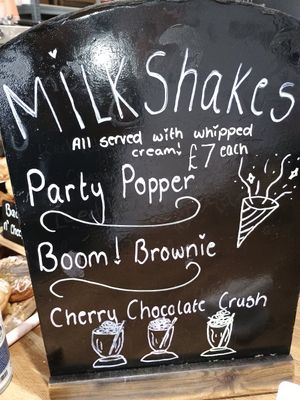 MILKShakes
All served with whipped
cream! £7 each
Party Popper
Boom! Brownie
Cherry Chocolate Crush